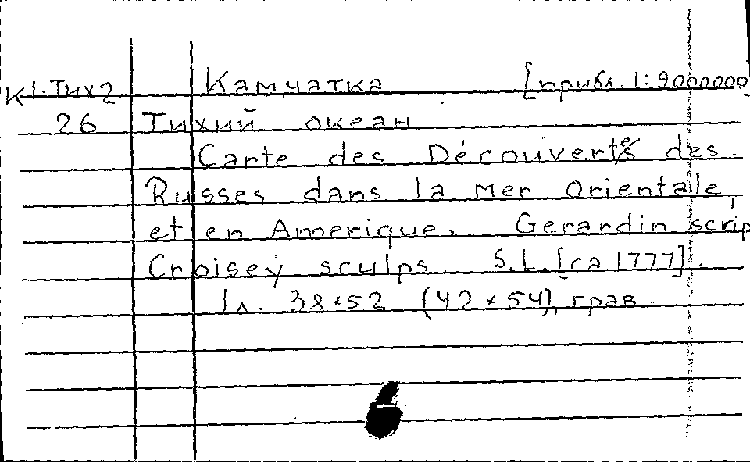 К1.Тих2 Камчатка [прибл. 1:9000000
26 Тихий океан
Carte des Découvertes des
Russes dans la Mer Orientale,
et en Amerique. Gerardin scrip
Croisey sculps S.L. [ca 1777].
1л. 38×52 (42×54), грав